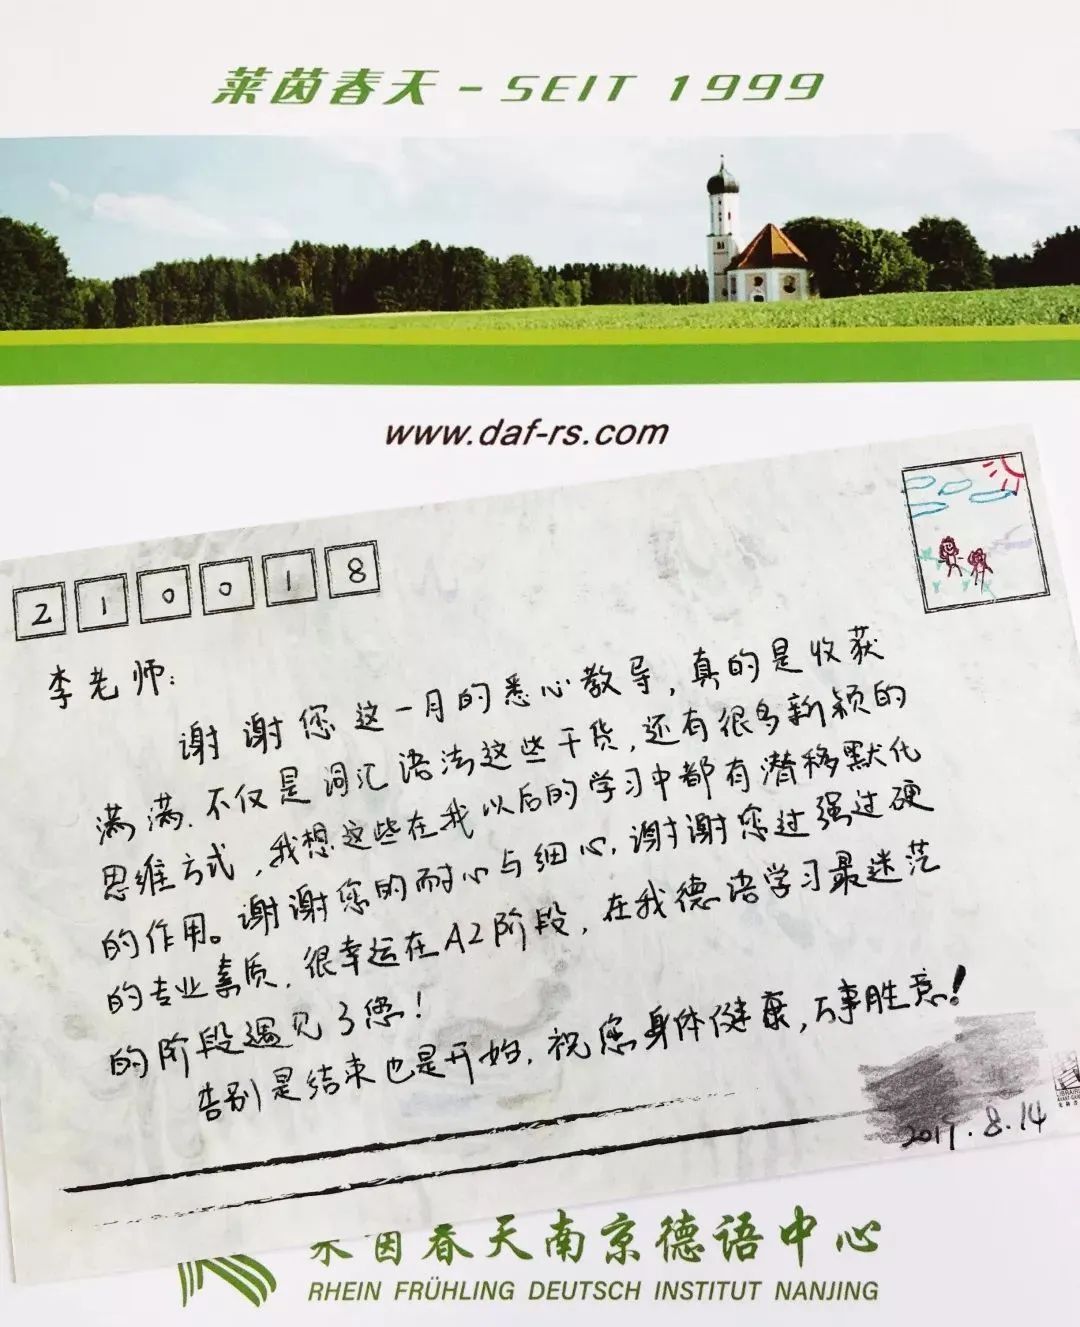 莱茵春天 - SEIT 1999
www.daf-rs.com
210018
李老师:
谢谢您这一月的悉心教导,真的是收获
满满.不仅是词汇语法这些干货,还有很多新颖的
思维方式,我想这些在我以后的学习中都有潜移默化
的作用。谢谢您的耐心与细心,谢谢您过强过硬
的专业素质,很幸运在A2阶段,在我德语学习最迷茫
的阶段遇见了您!
告别是结束也是开始,祝您身体健康,万事胜意!
2019.8.14
莱茵春天南京德语中心
RHEIN FRÜHLING DEUTSCH INSTITUT NANJING